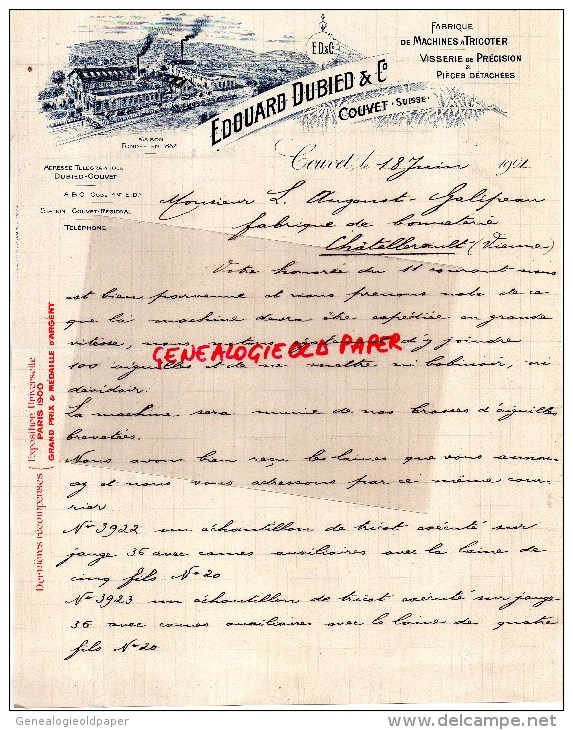 E.D.&C.
FABRIQUE
DE MACHINES A TRICOTER
VISSERIE DE PRÉCISION
&
PIÈCES DÉTACHÉES
EDOUARD DUBIED & Cº
COUVET · SUISSE ·
MAISON
FONDÉE EN
ADRESSE TÉLÉGRAPHIQUE
DUBIED-COUVET
A.B.C. CODE 4th ED.
STATION COUVET-RÉGIONAL
TÉLÉPHONE
Couvet, le 18 Juin 1901
Monsieur L. August-Galipeau
fabrique de bonneterie
Châtellerault (Vienne)
Votre honorée du 11 courant nous
est bien parvenue et nous prenons note de ce
que la machine devra être expédiée en grande
vitesse, d'y joindre
100 aiguilles et de ne mettre ni bobinoir, ni
dévidoir.
La machine sera munie de nos brosses d'aiguilles
brevetées.
Nous avons bien reçu les laines que vous annon-
cez et nous vous adressons par ce même cour-
rier
Nº 3922 un échantillon de tricot exécuté sur
jauge 36 avec cames auxiliaires avec la laine de
cinq fils Nº 20
Nº 3923 un échantillon de tricot exécuté sur jauge
36 avec cames auxiliaires avec la laine de quatre
fils Nº 20
Dernières récompenses
Exposition Universelle
PARIS 1900
GRAND PRIX & MÉDAILLE D'ARGENT
GENEALOGIEOLD PAPER
Genealogieoldpaper
www.delcampe.net